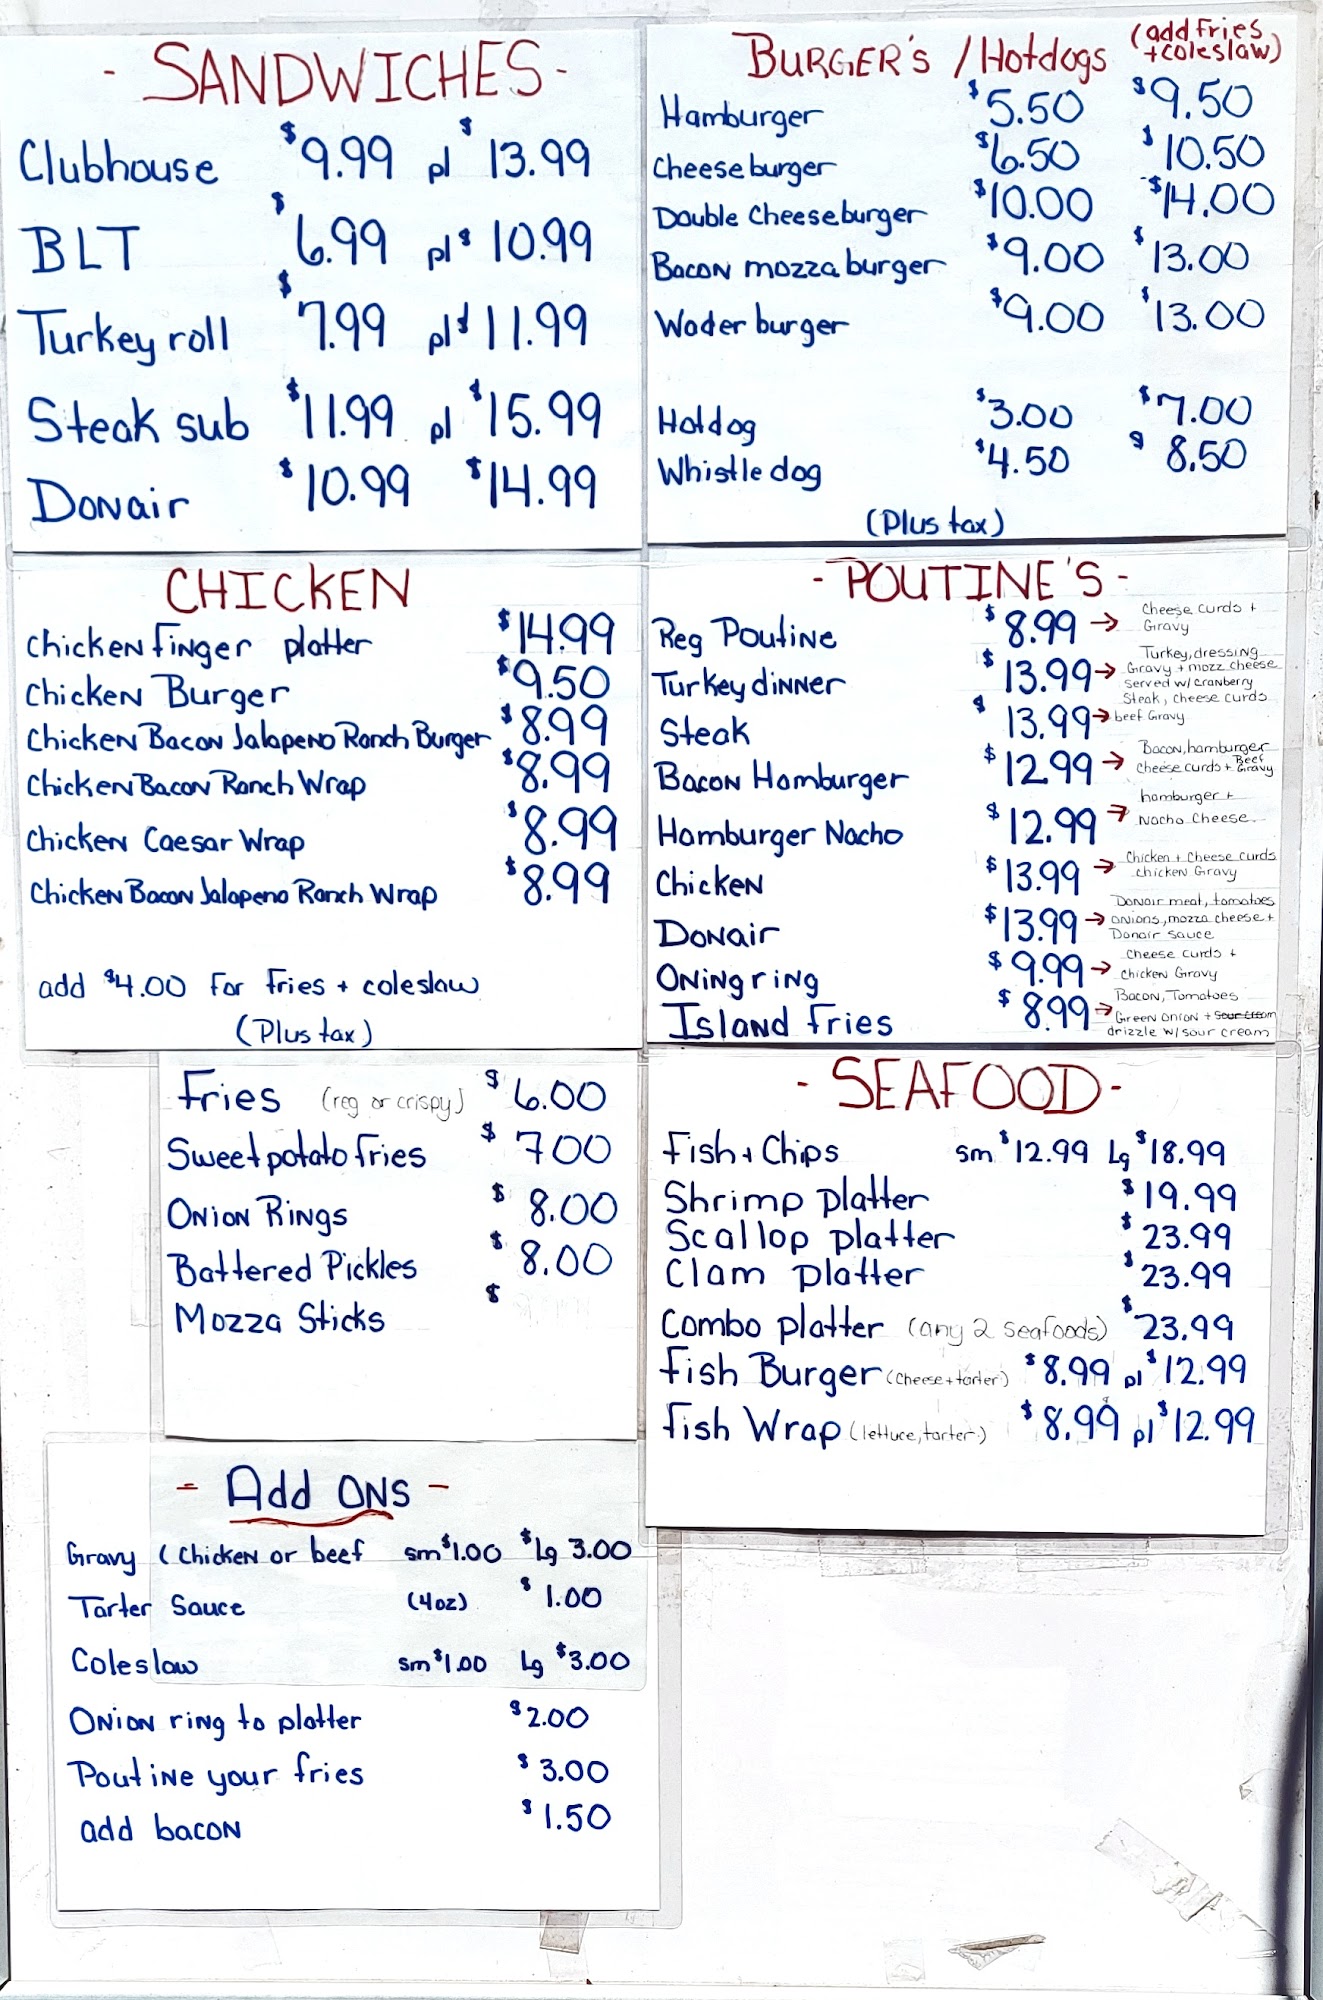 - SANDWICHES -
Clubhouse $9.99 pl $13.99
BLT $6.99 pl $10.99
Turkey roll $7.99 pl $11.99
Steak sub $11.99 pl $15.99
Donair $10.99 $14.99
BURGER'S / Hotdogs (add fries + coleslaw)
Hamburger $5.50 $9.50
Cheeseburger $6.50 $10.50
Double Cheeseburger $10.00 $14.00
Bacon mozza burger $9.00 $13.00
Wader burger $9.00 $13.00
Hotdog $3.00 $7.00
Whistle dog $4.50 $8.50
(Plus tax)
CHICKEN
Chicken finger platter $14.99
Chicken Burger $9.50
Chicken Bacon Jalapeno Ranch Burger $8.99
Chicken Bacon Ranch Wrap $8.99
Chicken Caesar Wrap $8.99
Chicken Bacon Jalapeno Ranch Wrap $8.99
add $4.00 for fries + coleslaw
(Plus tax)
- POUTINE'S -
Reg Poutine $8.99 → Cheese curds + Gravy
Turkey dinner $13.99 → Turkey, dressing Gravy + mozz cheese served w/ cranberry
Steak $13.99 → Steak, cheese curds beef Gravy
Bacon Hamburger $12.99 → Bacon, hamburger cheese curds + Beef Gravy
Hamburger Nacho $12.99 → hamburger + Nacho Cheese
Chicken $13.99 → Chicken + cheese curds chicken Gravy
Donair $13.99 → Donair meat, tomatoes onions, mozza cheese + Donair sauce
Oning ring $9.99 → cheese curds + chicken Gravy
Island fries $8.99 → Bacon, Tomatoes Green onion + sour cream drizzle w/ sour cream
Fries (reg or crispy) $6.00
Sweet potato fries $7.00
Onion Rings $8.00
Battered Pickles $8.00
Mozza Sticks $
- SEAFOOD -
Fish + Chips sm $12.99 Lg $18.99
Shrimp platter $19.99
Scallop platter $23.99
Clam platter $23.99
Combo platter (any 2 seafoods) $23.99
Fish Burger (cheese + tarter) $8.99 pl $12.99
Fish Wrap (lettuce, tarter) $8.99 pl $12.99
- Add ONS -
Gravy (Chicken or beef sm $1.00 $Lg 3.00
Tarter Sauce (4oz) $1.00
Coleslaw sm $1.00 Lg $3.00
Onion ring to platter $2.00
Poutine your fries $3.00
add bacon $1.50